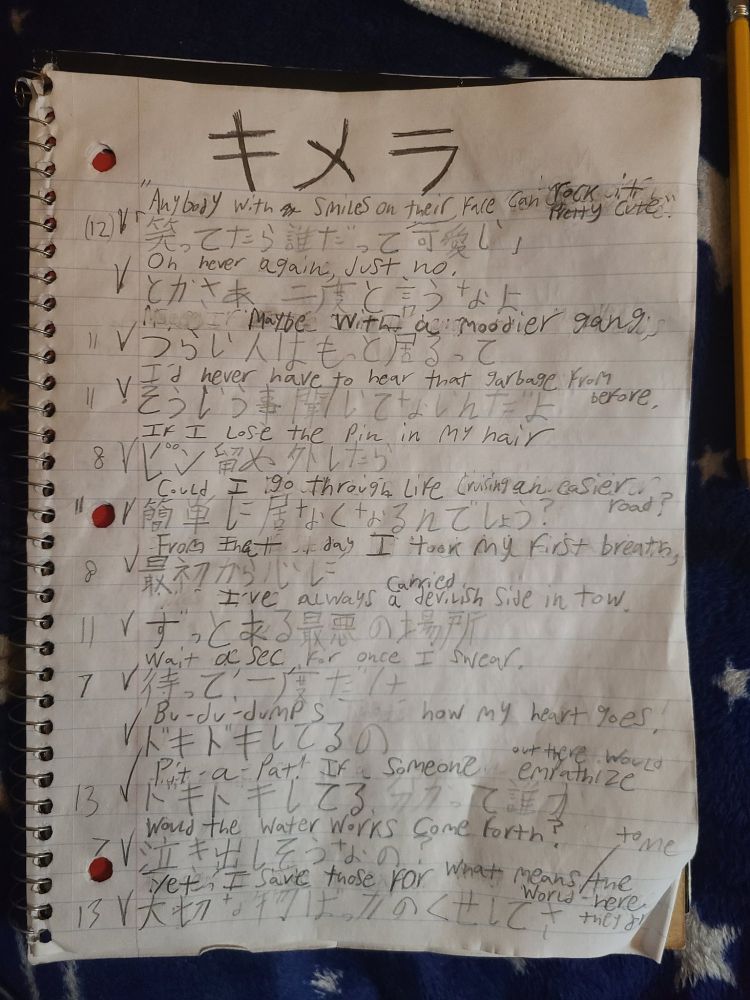 キメラ
"Anybody with smiles on their face can rock it pretty cute."
(12) 「笑ってたら誰だって可愛い」
Oh never again, just no.
とかさあ 二度と言うなよ
Maybe with a moodier gang,
11 つらい人はもっと居るって
I'd never have to hear that garbage from before.
11 そういう事聞いてないんだよ
If I lose the pin in my hair
8 ピン留め外したら
Could I go through life cruising an easier road?
11 簡単に居なくなるんでしょう?
From that day I took my first breath,
8 最初から心に
I've always carried a devilish side in tow.
11 ずっとある最悪の場所
Wait a sec, for once I swear.
7 待って、一度だけ
Bu-du-dumps how my heart goes!
ドキドキしてるの
Pit-a-Pat! If someone out there would empathize
13 ドキドキしてる 分かって誰か
Would the water works come forth?
7 泣き出しそうなの?
Yet, I save those for what means the world to me
13 大切な物ばっか のくせしてさ